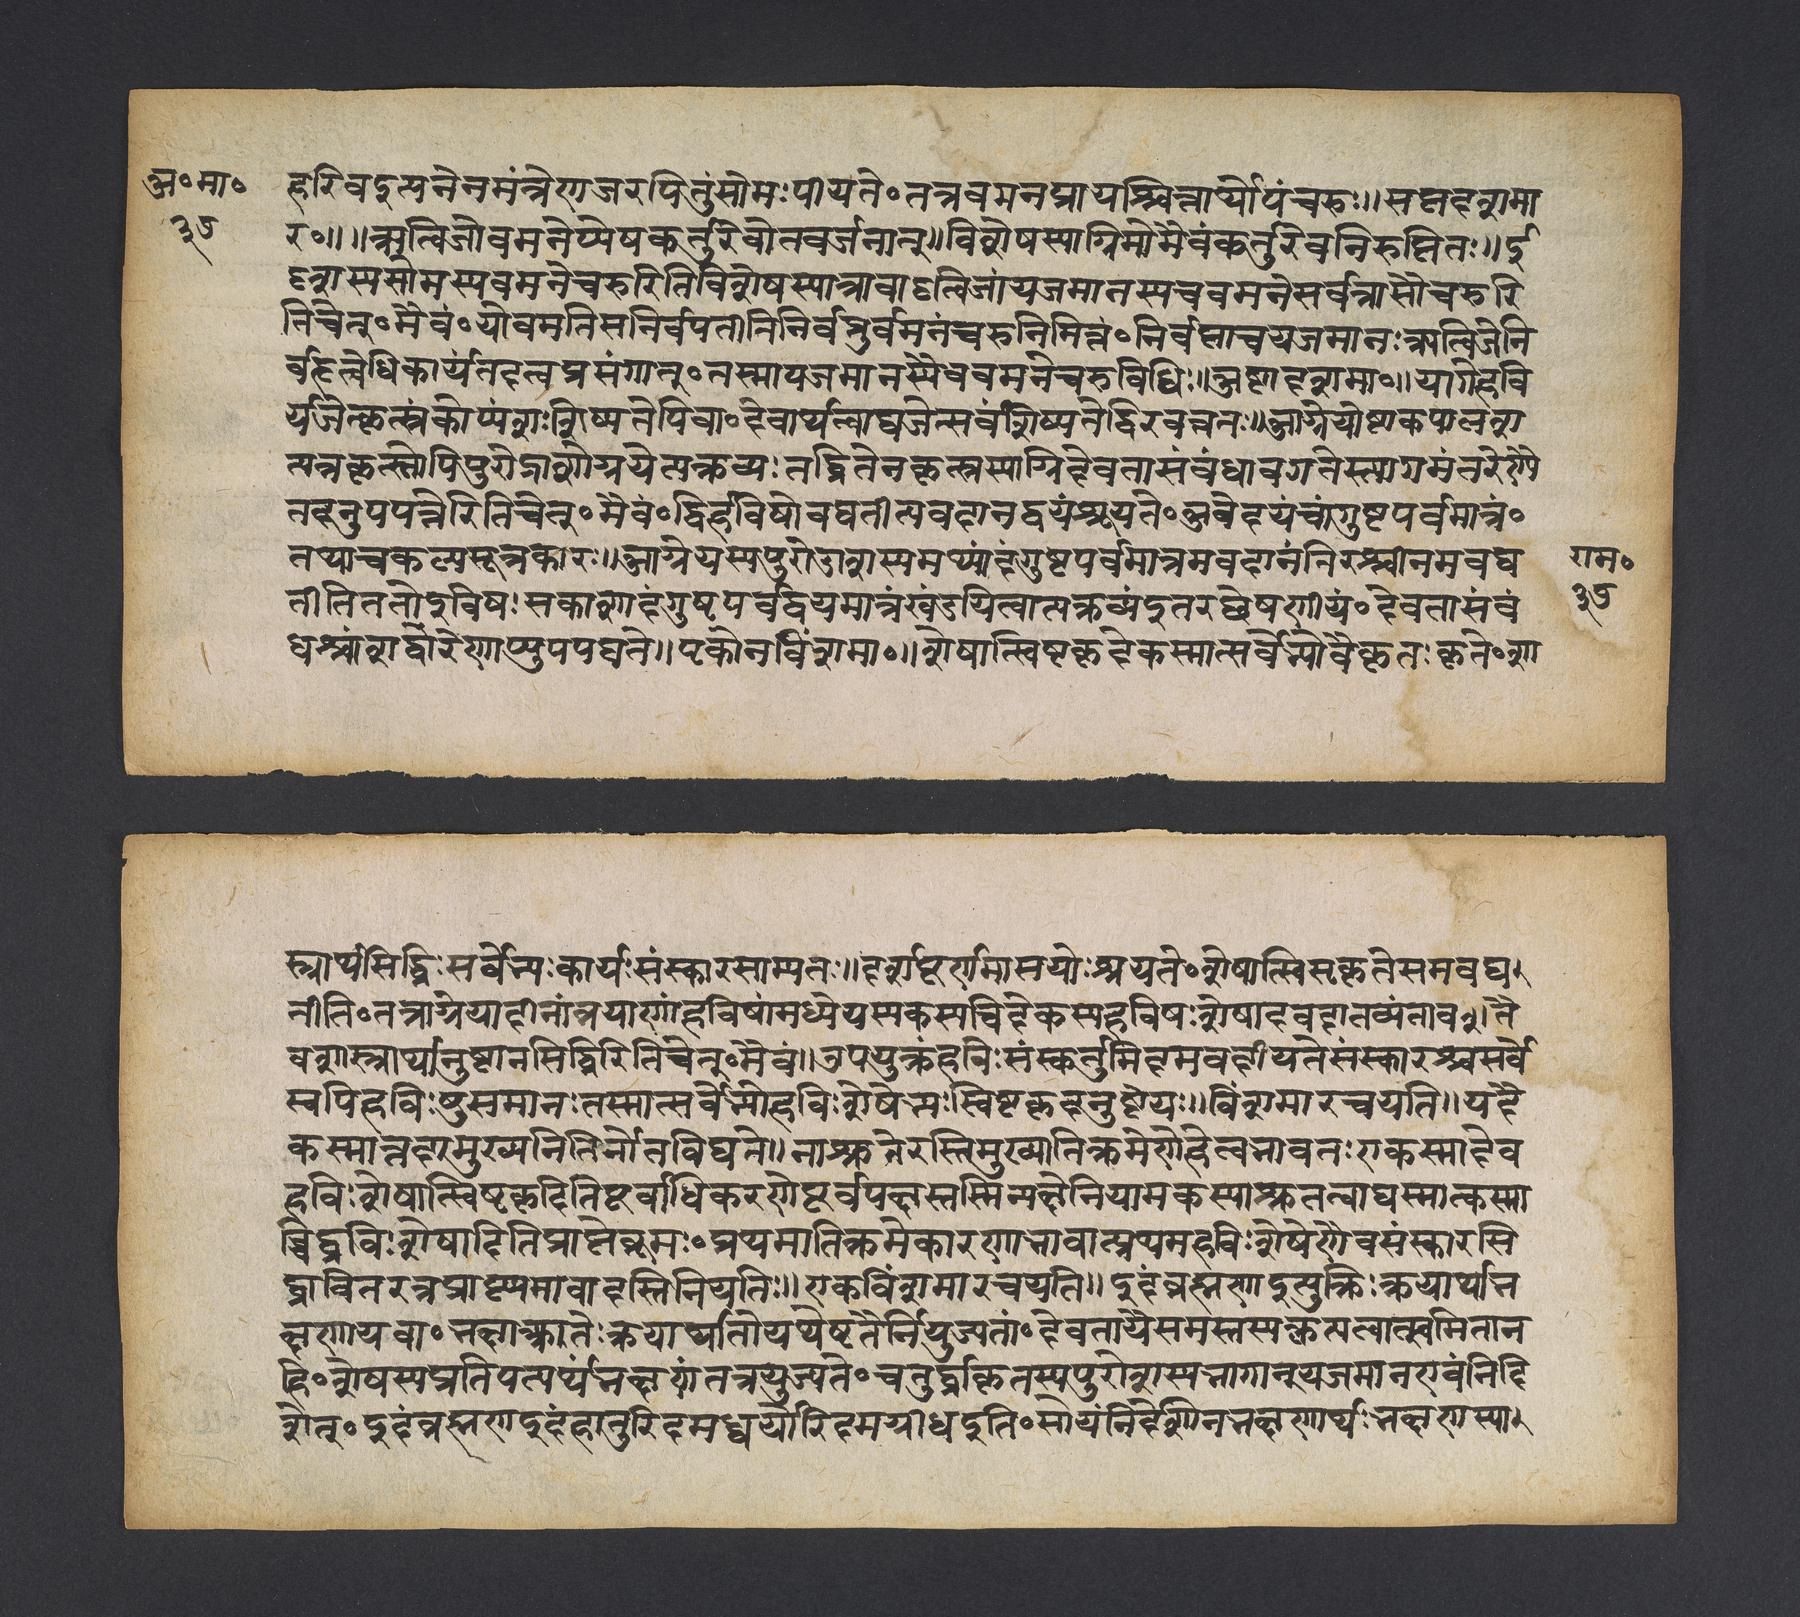 अ॰मा॰
३७
हरिवदुत्पनेनमंत्रेणजरपितुंसोमःपीयते॰तत्रवमनप्रायश्चित्तार्थोयंचरुः॥सप्तदशमा
र॰॥॥ऋत्विजोवमनेप्येषकर्तुरेवोतवर्जनात्॥विशेषस्याग्रिमोमैवंकर्तुरेवनिरुप्तितः॥ई
दृशस्यसोमस्यवमनेचरुरितिविशेषस्यात्रावादृत्विजांयजमानस्यचवमनेसर्वत्रासौचरुरि
तिचेत्॰मैवं॰योवमतिसनिर्वपतीतिनिर्वप्तुर्वमनंचरुनिमित्तं॰निर्वप्ताचयजमानःऋत्विजेनि
र्वतृत्वेधिकार्यंतरत्वप्रसंगात्॰तस्माद्यजमानस्यैववमनेचरुविधिः॥अष्टादशमा॰॥यागेहवि
र्यजेत्कृत्स्नंकोप्यंशःशिष्यतेपिवा॰देवार्थत्वाद्यजेत्सर्वंशिष्यतेद्विरवत्ततः॥आग्नेयोष्टाकपालश
त्यत्रकृत्स्नोपिपुरोडाशोग्नयेत्यक्तव्यःतद्धितेनकृत्स्नस्याग्निदेवतासंबंधावगतेस्त्यागमंतरेणै
तदनुपपत्तेरितिचेत्॰मैवं॰द्विर्हविषोवद्यतीत्यवदानद्वयंश्रूयते॰अवदेयंचांगुष्टपर्वमात्रं॰
तथाचकल्पसूत्रकारः॥आग्नेयस्यपुरोडाशस्यमध्यादंगुष्टपर्वमात्रमवदानंतिरश्चीनमवद्य
तीतिततोहविषःसकाशादंगुष्टपर्वद्वयमात्रंखंडयित्वात्यक्तव्यंइतरच्छेषणीयं॰देवतासंबं
धश्चांशद्वारेणाप्युपपद्यते॥एकोनविंशमा॰॥शेषात्स्विष्टकृदेकस्मात्सर्वेभ्योवैकृतःकृते॰शा
राम॰
३७
स्त्रार्थसिद्धिःसर्वेभ्यःकार्यःसंस्कारसाम्यतः॥दर्शपूर्णमासयोःश्रूयते॰शेषात्स्विसृकृतेसमवद्य
तीति॰तत्राग्नेयादीनांत्रयाणांहविषांमध्येयस्यकस्यचिदेकस्यहविषःशेषादवदातव्यंतावतै
वशास्त्रार्थानुष्टानसिद्धिरितिचेत्॰मैवं॥उपयुक्तंहविःसंस्कर्तुमिदमवदीयतेसंस्कारश्चसर्वे
स्वपिहविःषुसमानःतस्मात्सर्वेभ्योहविःशेषेभ्यःस्विष्टकृदनुष्टेयः॥विंशमारचयति॥यदै
कस्मात्तदामुख्यनितिर्नोतविद्यते॥नाश्रुतेरस्तिमुख्यातिक्रमेहेत्वभावतःएकस्मादेव
हविःशेषात्स्विष्टकृदितिपूर्वाधिकरणेपूर्वपक्षस्तस्मिन्पक्षेनियामकस्याश्रुतत्वाद्यस्मात्कस्मा
च्चिद्धविःशेषादितिप्राप्तेब्रूमः॰प्रथमातिक्रमेकारणाभावात्प्रथमहविःशेषेणैवसंस्कारसि
द्धावितरत्रप्राप्त्यभावादस्तिनियतिः॥एकविंशमारचयति॥इदंब्रह्मणइत्युक्तिःक्रयार्थान
क्षणायवा॰भक्षाश्रुतेःक्रयार्थातोयथेष्टंतैर्नियुज्यतां॰देवतायैसमस्तस्यकॢप्तत्वात्स्वमितान
हि॰शेषस्यप्रतिपत्त्यर्थंभक्षणंतत्रयुज्यते॰चतुर्द्धाकृतस्यपुरोडाशस्यभागान्यजमानएवंनिर्दि
शेत्॰इदंब्रह्मणइदंहोतुरिदमध्वर्योरिदमग्नीधइति॰सोयंनिर्देशोनभक्षणार्थःभक्षणस्या